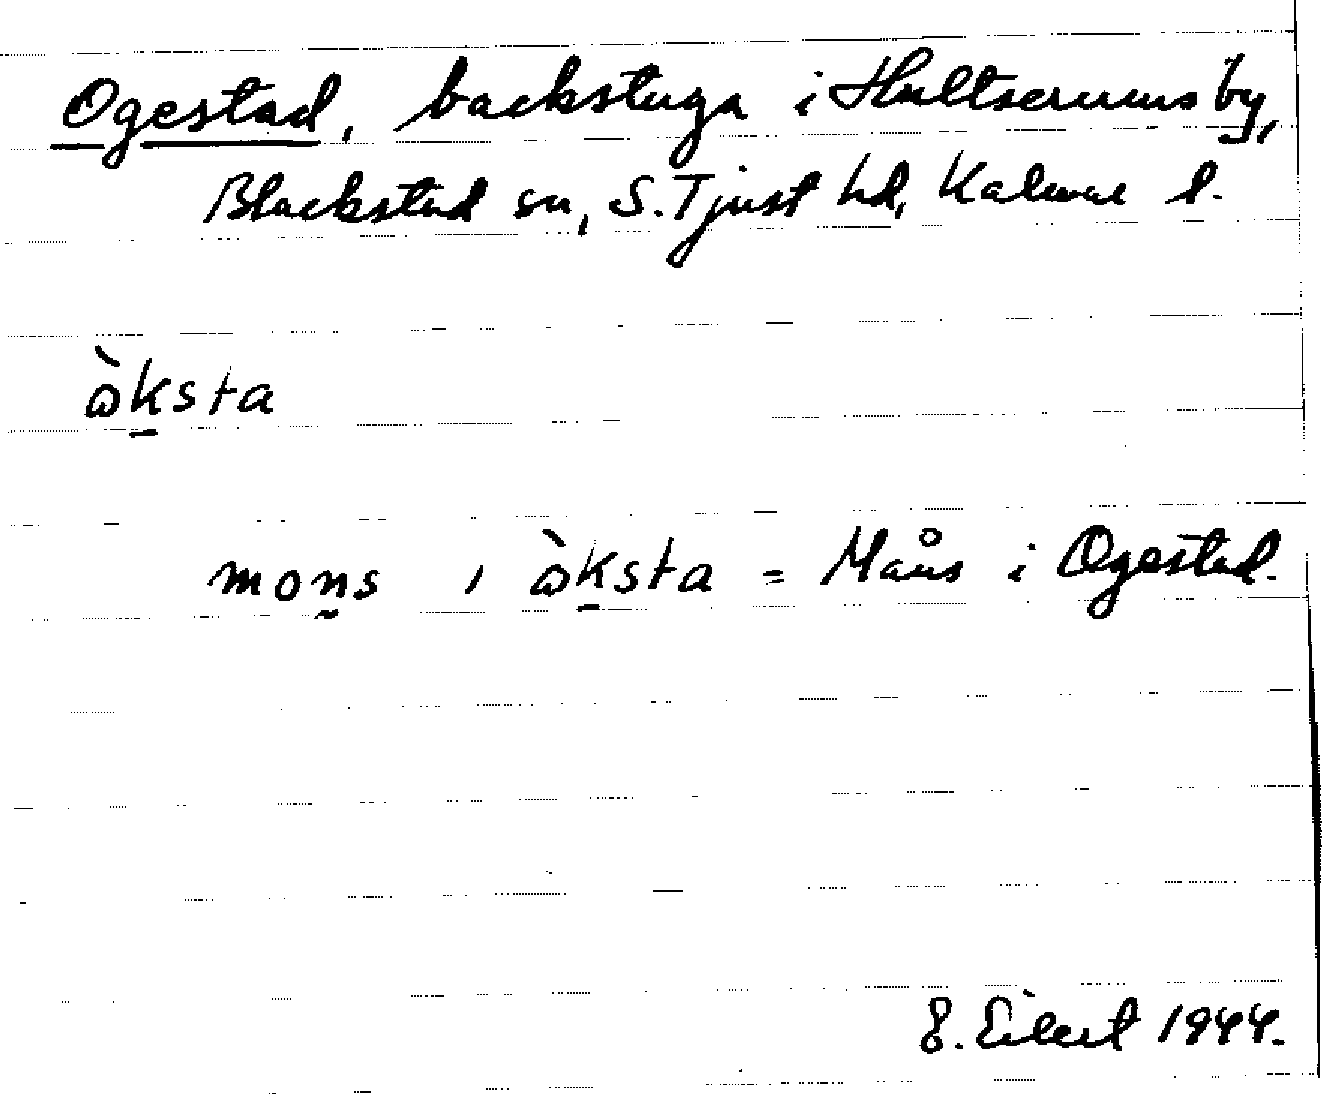 Ogestad, backstuga i Hultserums by,
Blackstad sn, S. Tjust hd, Kalmar l.
ὼksta
mons ı ὼksta = Måns i Ogestad.
E. Eilert 1944.